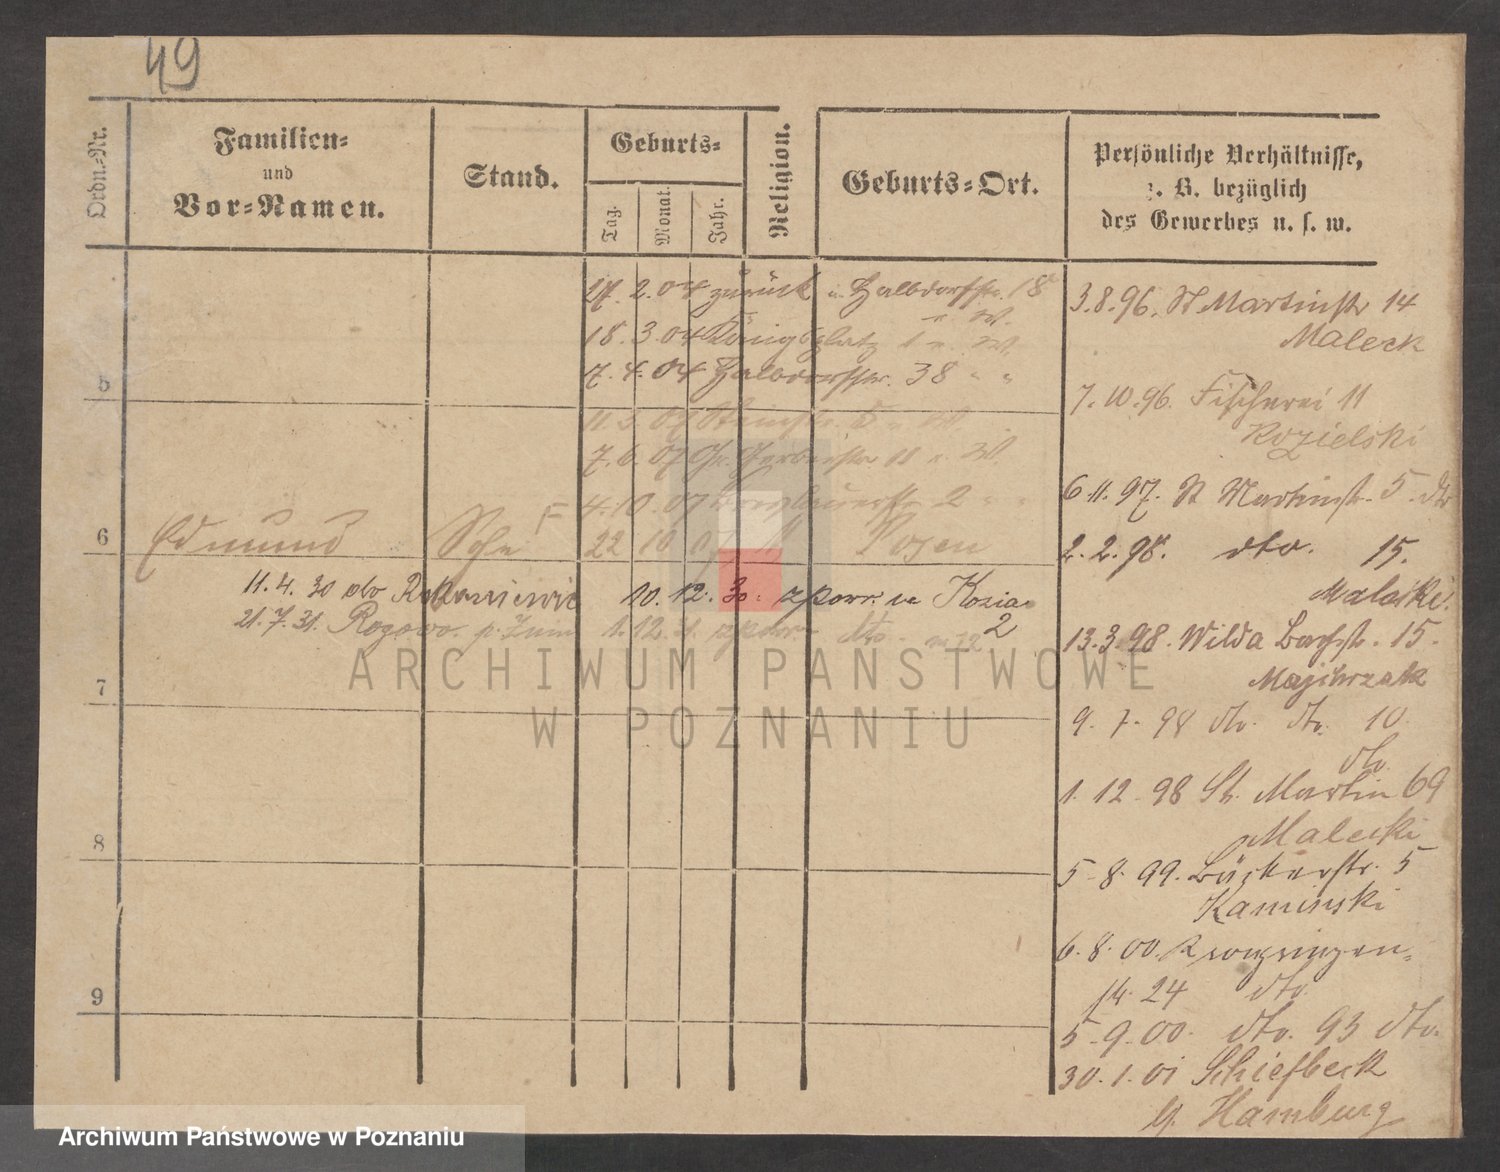 49
Ordn.-Nr.
Familien-
und
Vor-Namen.
Stand.
Geburts-
Tag.
Monat.
Jahr.
Religion.
Geburts-Ort.
Persönliche Verhältnisse,
z. B. bezüglich
des Gewerbes u. s. w.
17. 2. 04 zurück Halbdorfstr. 18
18. 3. 04 Königsplatz
7. 4. 04 Halbdorfstr. 38 " "
5
7. 6. 07 Gr. Gerberstr.
4. 10. 07 2 " "
6 Edmund Sohn F 22 10 07 Posen
11. 4. 30 do 10. 12. 30.
21. 7. 31. Rogowo. p. Żnin 1. 12. dto. 2
7
8
9
3. 8. 96. St Martinstr 14
Maleck
7. 10. 96. Fischerei 11
Kozielski
6 11. 97. St Martinstr. 5. dto
2. 2. 98. dto. 15.
Malecki.
13. 3. 98. Wilda Bachstr. 15.
Majchrzak
9. 7. 98 dto. dto. 10
dto.
1. 12. 98 St. Martin 69
Malecki
5. 8. 99. Bäckerstr. 5
Kaminski
6. 8. 00. Kronprinzen-
str. 24 dto.
5. 9. 00. dto. 93 dto.
30. 1. 01 Schiefbeck
b/. Hamburg
ARCHIWUM PAŃSTWOWE
W POZNANIU
Archiwum Państwowe w Poznaniu